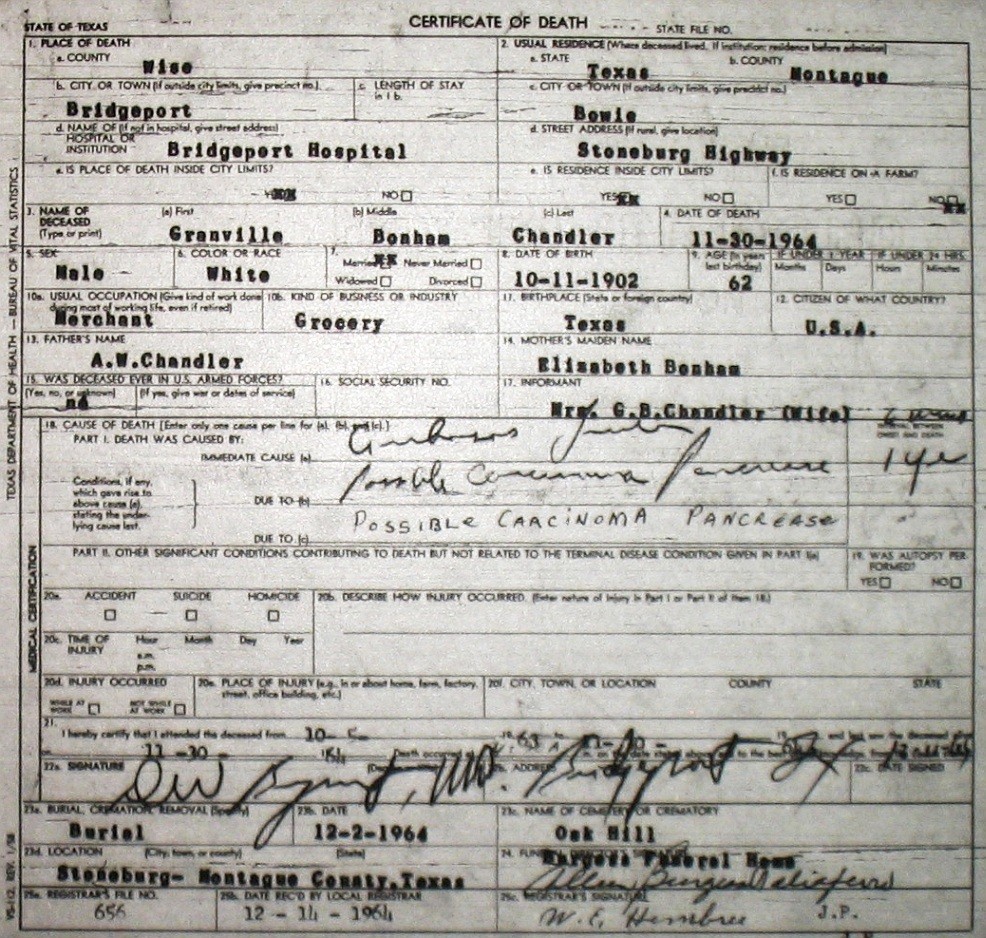 CERTIFICATE OF DEATH
STATE OF TEXAS STATE FILE NO.
1. PLACE OF DEATH
a. COUNTY
Wise
2. USUAL RESIDENCE (Where deceased lived. If institution: residence before admission)
a. STATE b. COUNTY
Texas Montague
b. CITY OR TOWN (If outside city limits, give precinct no.)
Bridgeport
c. LENGTH OF STAY
in 1 b.
c. CITY OR TOWN (If outside city limits, give precinct no.)
Bowie
d. NAME OF (If not in hospital, give street address)
HOSPITAL OR
INSTITUTION Bridgeport Hospital
d. STREET ADDRESS (If rural, give location)
Stoneburg Highway
e. IS PLACE OF DEATH INSIDE CITY LIMITS?
YES NO
e. IS RESIDENCE INSIDE CITY LIMITS?
YES NO
f. IS RESIDENCE ON A FARM?
YES NO
3. NAME OF
DECEASED
(Type or print)
(a) First (b) Middle (c) Last
Granville Bonham Chandler
4. DATE OF DEATH
11-30-1964
5. SEX
Male
6. COLOR OR RACE
White
7.
Married Never Married
Widowed Divorced
8. DATE OF BIRTH
10-11-1902
9. AGE (In years
last birthday)
62
IF UNDER 1 YEAR IF UNDER 24 HRS.
Months Days Hours Minutes
10a. USUAL OCCUPATION (Give kind of work done
during most of working life, even if retired)
Merchant
10b. KIND OF BUSINESS OR INDUSTRY
Grocery
11. BIRTHPLACE (State or foreign country)
Texas
12. CITIZEN OF WHAT COUNTRY?
U.S.A.
13. FATHER'S NAME
A.W.Chandler
14. MOTHER'S MAIDEN NAME
Elizabeth Bonham
15. WAS DECEASED EVER IN U.S. ARMED FORCES?
(Yes, no, or unknown) (If yes, give war or dates of service)
16. SOCIAL SECURITY NO.
17. INFORMANT
Mrs. G.B.Chandler (Wife)
18. CAUSE OF DEATH [Enter only one cause per line for (a), (b), and (c).]
PART I. DEATH WAS CAUSED BY:
IMMEDIATE CAUSE (a)
INTERVAL BETWEEN
ONSET AND DEATH
Conditions, if any,
which gave rise to
above cause (a),
stating the under-
lying cause last.
Possible Carcinoma Pancrease 1 yr
DUE TO (b)
POSSIBLE CARCINOMA PANCREASE
DUE TO (c)
PART II. OTHER SIGNIFICANT CONDITIONS CONTRIBUTING TO DEATH BUT NOT RELATED TO THE TERMINAL DISEASE CONDITION GIVEN IN PART I(a)
19. WAS AUTOPSY PER-
FORMED?
YES NO
20a. ACCIDENT SUICIDE HOMICIDE
20b. DESCRIBE HOW INJURY OCCURRED. (Enter nature of injury in Part I or Part II of Item 18.)
20c. TIME OF
INJURY
Hour Month Day Year
a.m.
p.m.
20d. INJURY OCCURRED
WHILE AT
WORK
NOT WHILE
AT WORK
20e. PLACE OF INJURY (e.g., in or about home, farm, factory,
street, office building, etc.)
20f. CITY, TOWN, OR LOCATION COUNTY STATE
21.
I hereby certify that I attended the deceased from 10-
11 -30 - Death occurred at
22a. SIGNATURE
22b. ADDRESS
Bridgeport Tx
22c. DATE SIGNED
23a. BURIAL, CREMATION, REMOVAL (Specify)
Burial
23b. DATE
12-2-1964
23c. NAME OF CEMETERY OR CREMATORY
Oak Hill
23d. LOCATION (City, town, or county) (State)
Stoneburg- Montague County,Texas
24. FUNERAL DIRECTOR'S SIGNATURE
Burgess Funeral Home
25a. REGISTRAR'S FILE NO.
656
25b. DATE REC'D BY LOCAL REGISTRAR
12 - 14 - 1964
25c. REGISTRAR'S SIGNATURE
W.E. Hembree J.P.
TEXAS DEPARTMENT OF HEALTH — BUREAU OF VITAL STATISTICS
MEDICAL CERTIFICATION
VS-112, REV. 1/58